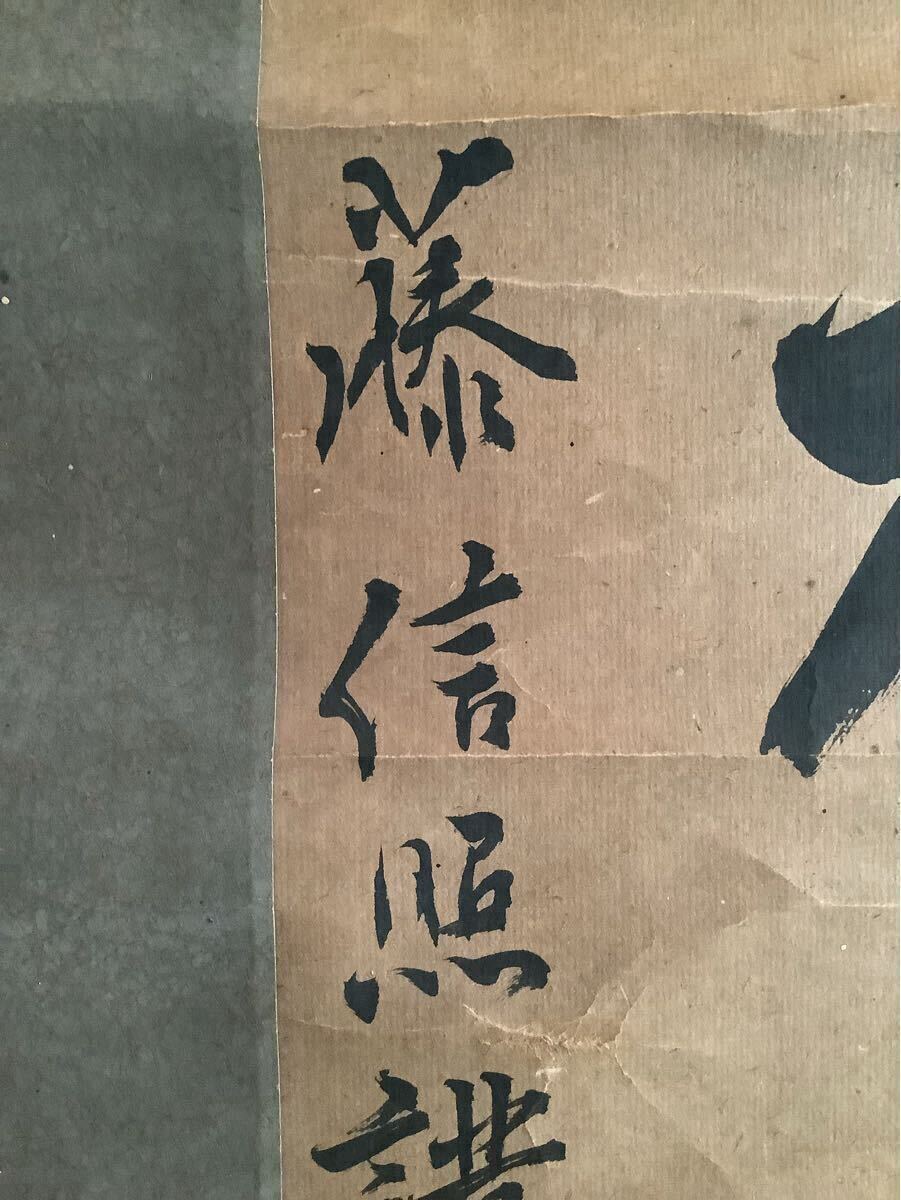 藤信照謹